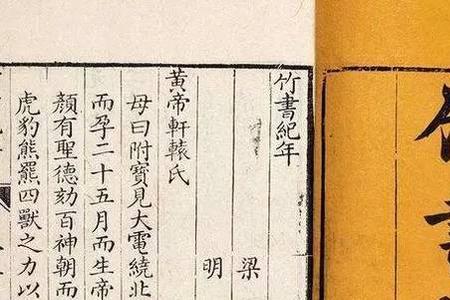 竹書
竹書紀年
梁
明
黃帝軒轅氏
母曰附寶見大電繞北
而孕二十五月而生帝
顏有聖德劾百神朝而
虎豹熊羆四獸之力以